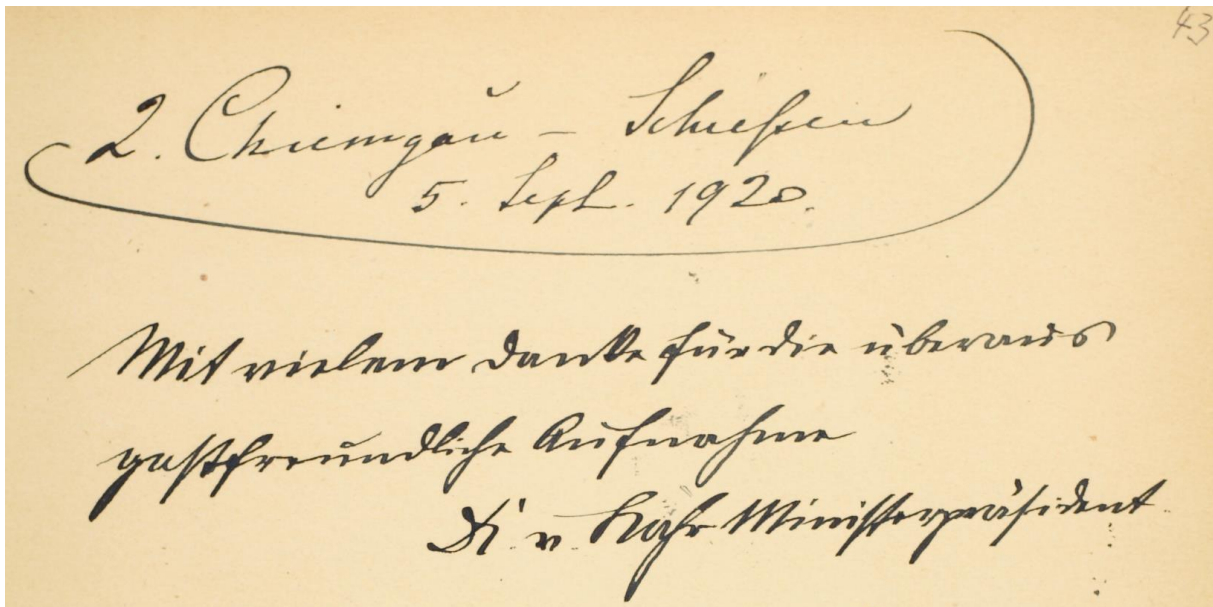 43
2. Chiemgau - Schießen
5. Sept. 1920.
Mit vielem Danke für die überaus
gastfreundliche Aufnahme
Dr. v. Kahr Ministerpräsident